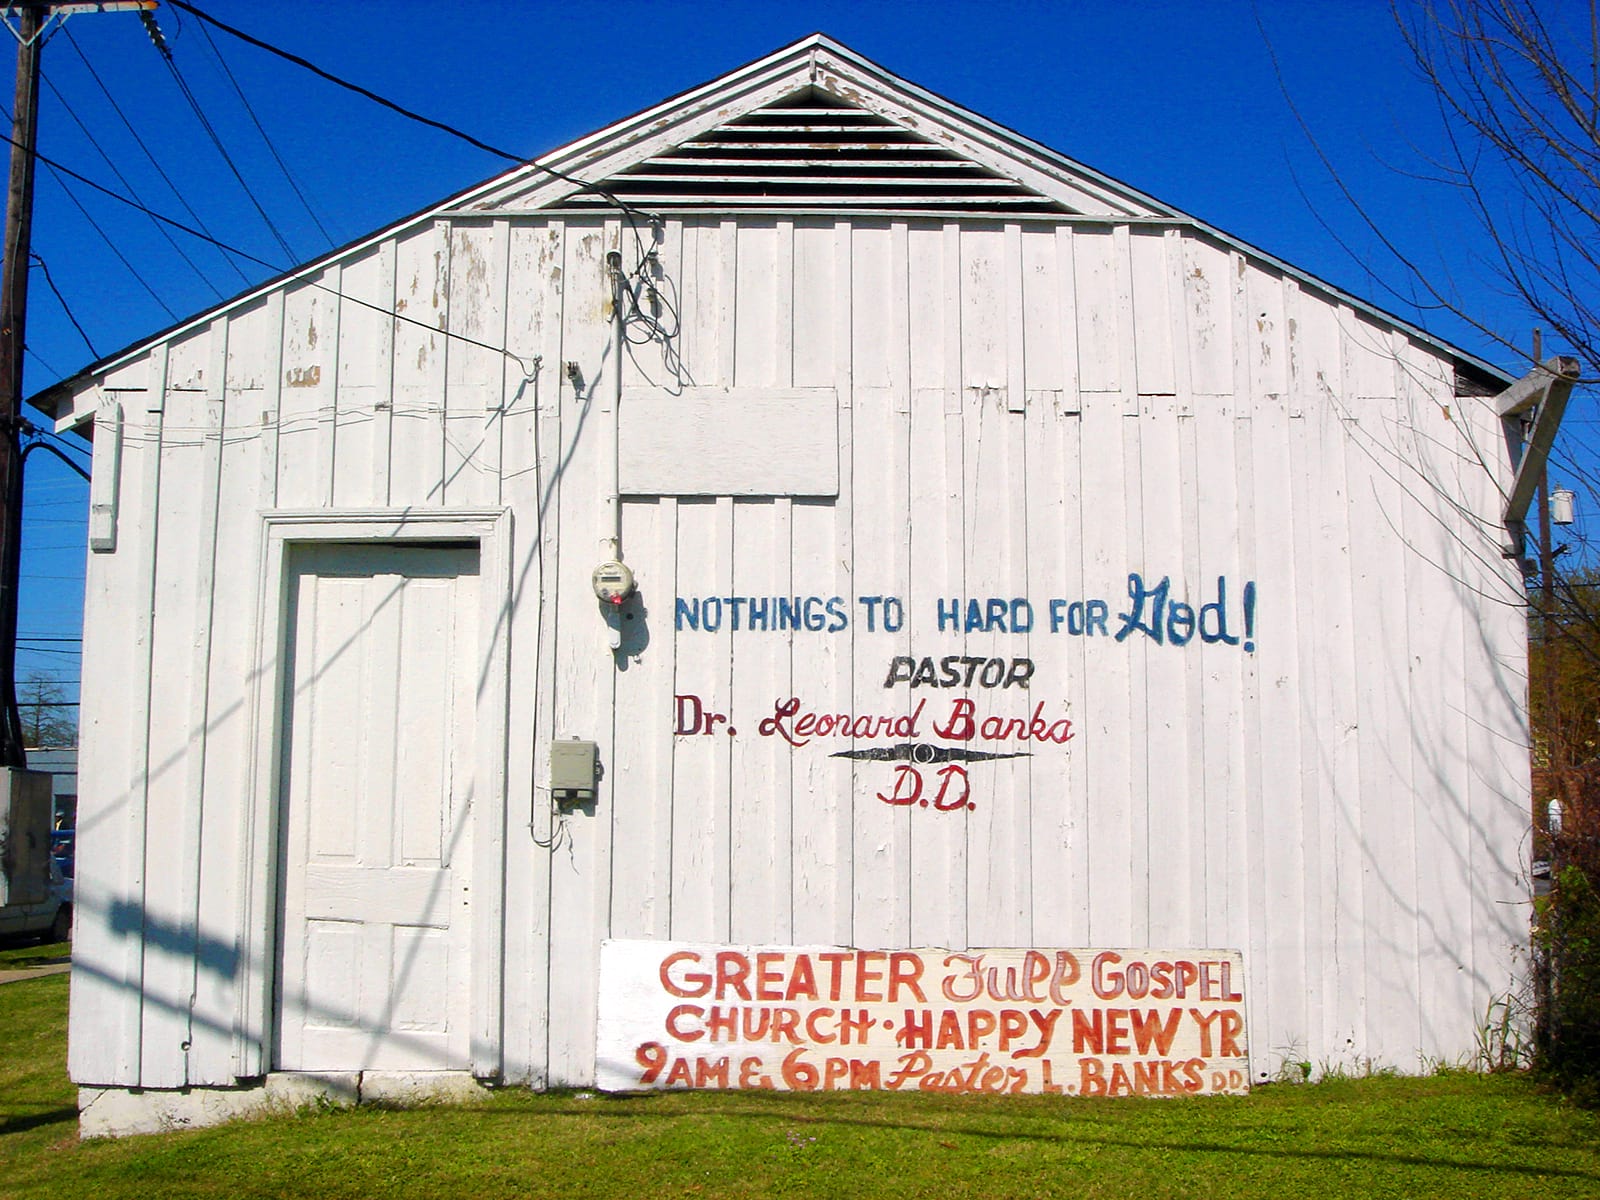 NOTHINGS TO HARD FOR God!
PASTOR
Dr. Leonard Banks
D.D.
GREATER Full GOSPEL
CHURCH · HAPPY NEW YR.
9AM & 6PM Paster L. BANKS D.D.